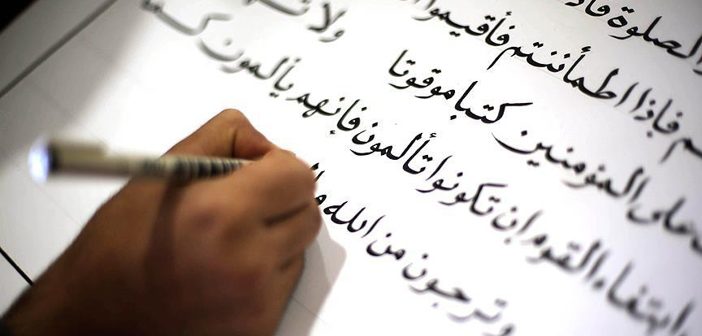 الصلوة فاذ
فاذا اطمأننتم فأقيموا
على المؤمنين كتبا موقوتا ولا
ابتغاء القوم إن تكونوا تألمون فإنهم يألمون
وترجون من الله